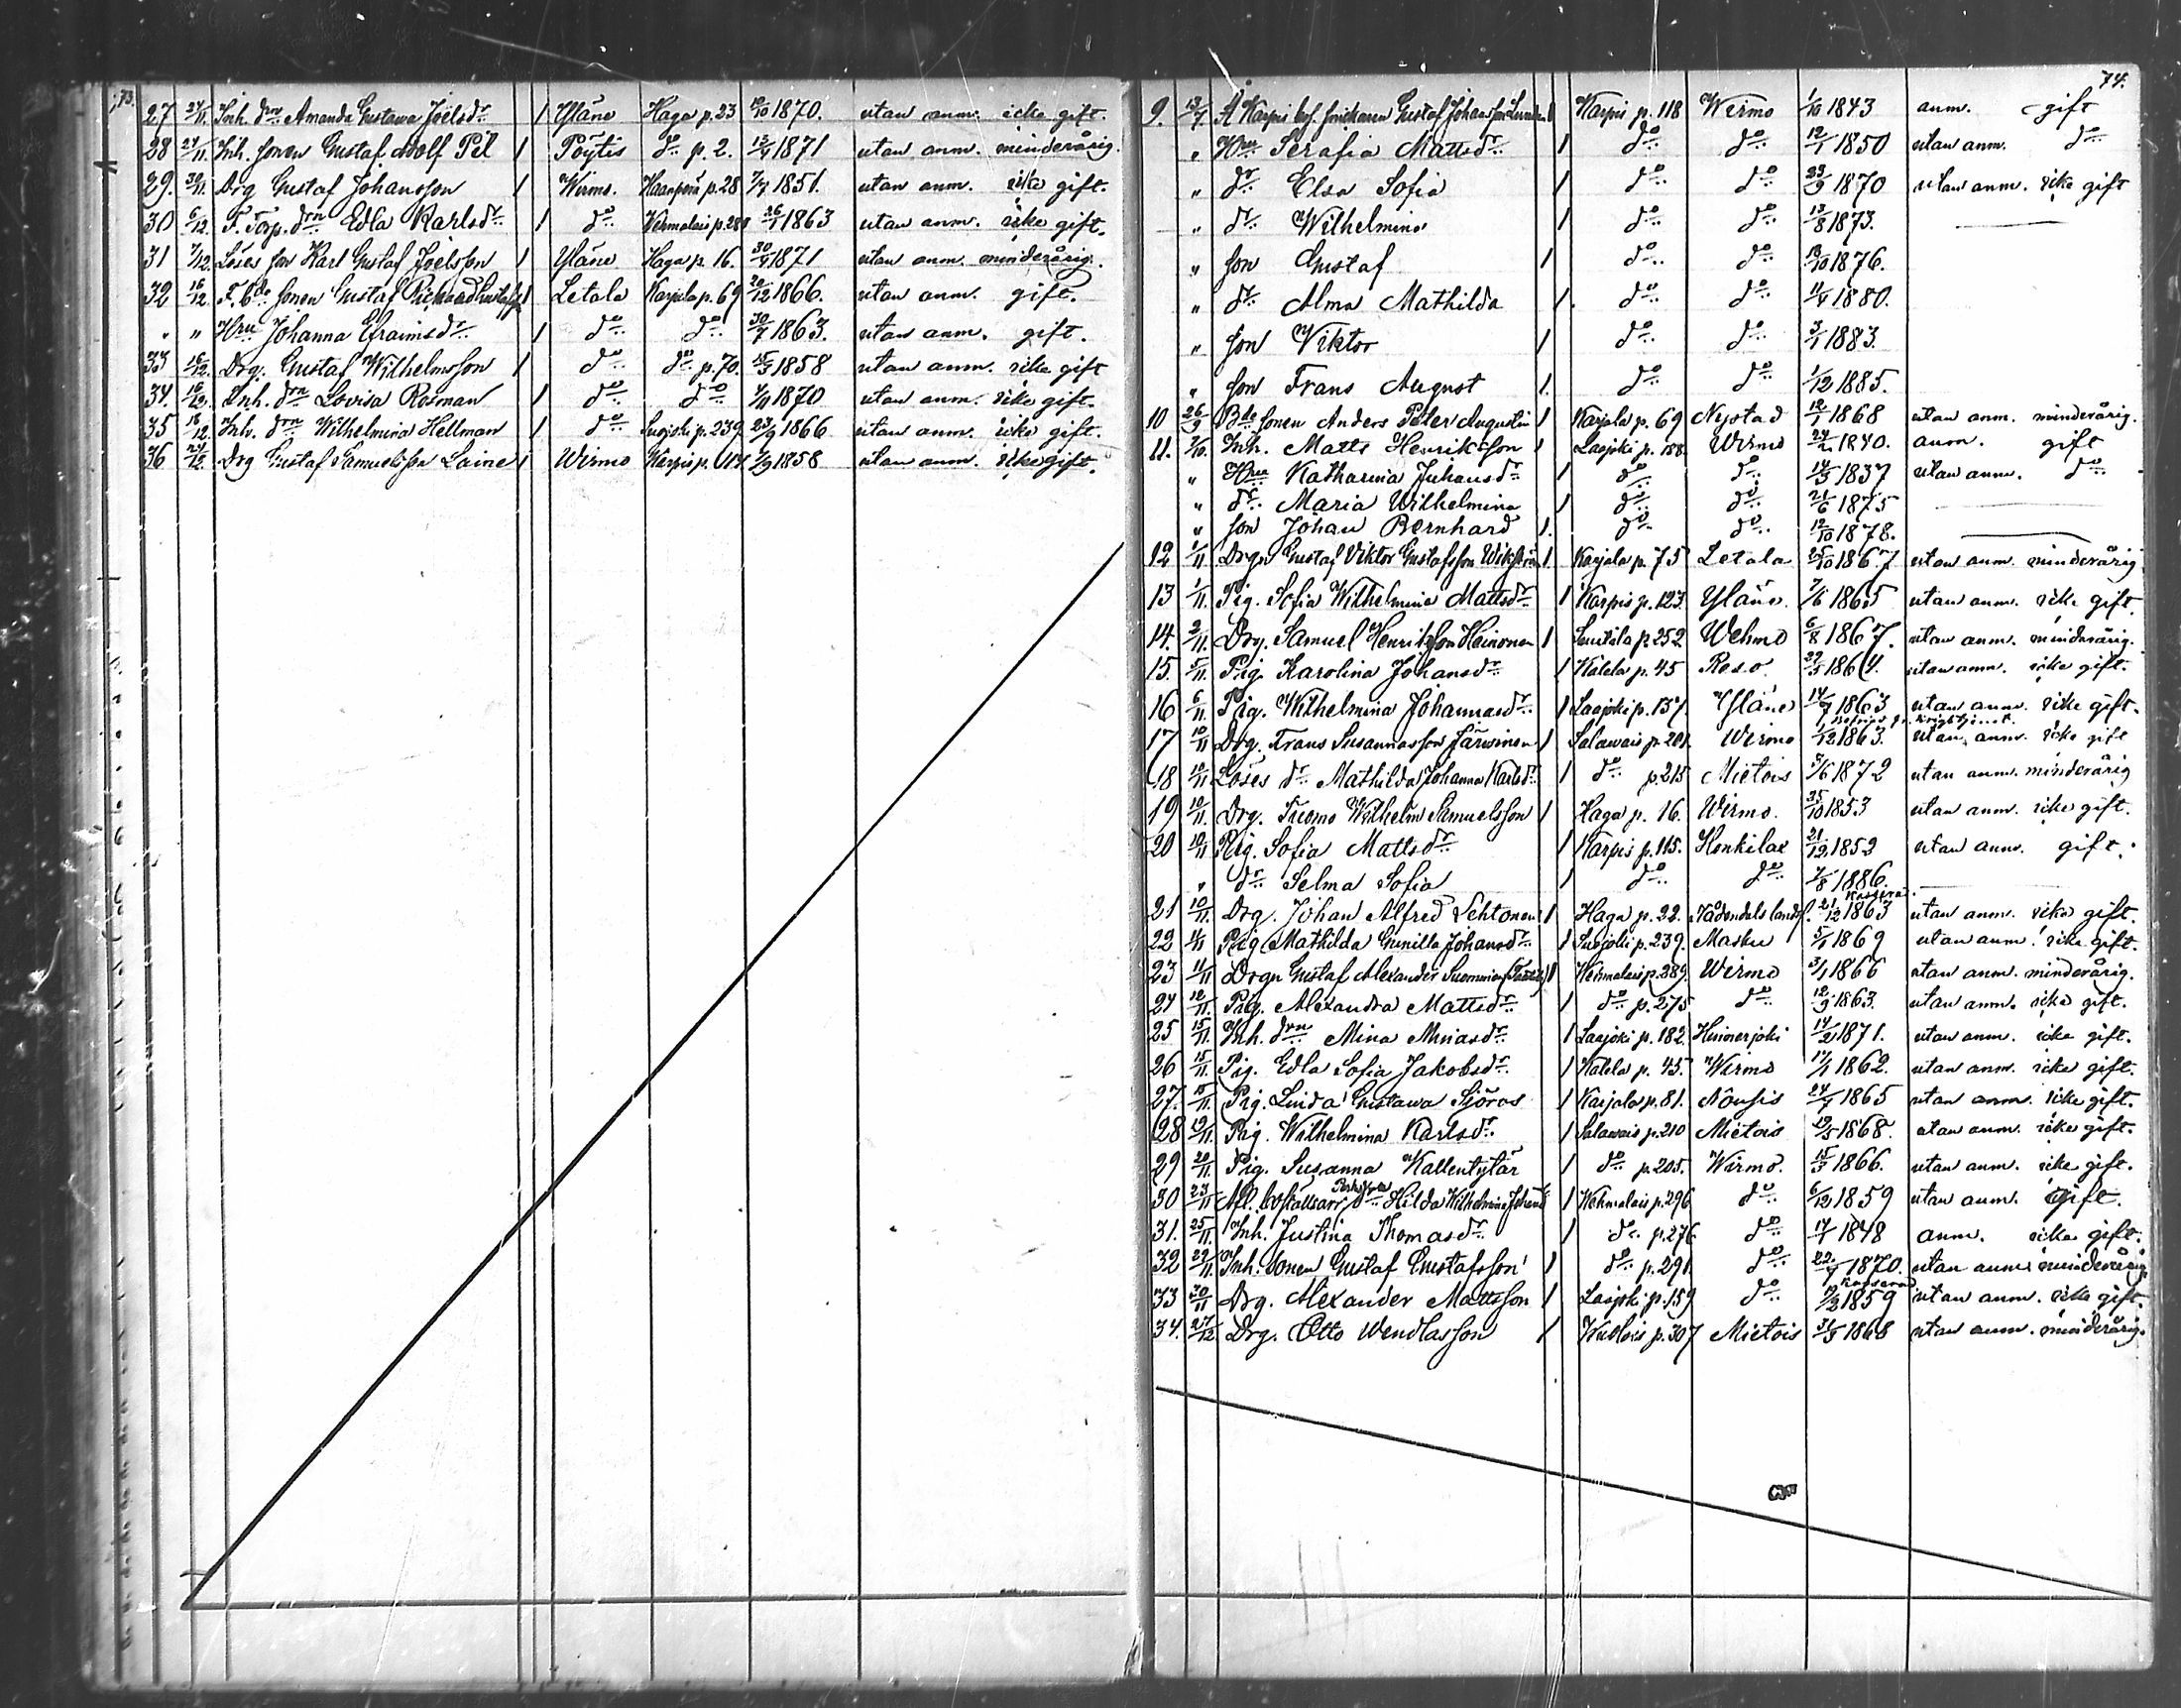 73.
27 24/11. Inh. drn Amanda Gustava Joelsdr 1 Yläne Haga p. 23 10/10 1870. utan anm. icke gift.
28 24/11. Inh. sonen Gustaf Adolf Pil 1 Pöytis do p. 2. 1871 utan anm. minderårig.
29. 30/11. Drg Gustaf Johansson 1 Wirmo. Haanperä p. 28 1851. utan anm. icke gift.
30 6/12. F. Torp. drn Edla Karlsdr 1 do Vehmalais p. 1863 utan anm. icke gift.
31 7/12. Löses son Karl Gustaf Joelsson 1 Yläne Haga p. 16. 1871 utan anm. minderårig.
32 16/12 F. Bde sonen Gustaf Richard 1 Letala Karjala p. 69 20/12 1866. utan anm. gift.
" " Hru Johanna Efraimsdr 1 do do 30/7 1863. utan anm. gift.
33 16/12. Drg. Gustaf Wilhelmsson 1 do do p. 70. 15/3 1858 utan anm. icke gift
34. 16/12. Inh. drn Lovisa Rosman 1 do do 1870 utan anm. icke gift.
35 16/12. Inh. drn Wilhelmina Hellman 1 do Suojoki p. 239 23/9 1866 utan anm. icke gift.
36 Drg Gustaf Samuelsson Laine 1 Wirmo Karpis p. 1858 utan anm. icke gift.
74.
9. 13/7 Å Karpis Gustaf Johan Karpis p. 118 Wirmo 1/10 1843 anm. gift
" Hru Serafia Mattsdr 1 do do 12/1 1850 utan anm. do
" dr Elsa Sofia 1 do do 23/9 1870 utan anm. icke gift
" dr Wilhelmina 1 do do 13/8 1873.
" son Gustaf 1 do do 1876.
" dr Alma Mathilda 1. do do 1880.
" son Viktor 1 do do 3/1 1883.
" son Frans August 1. do do 1/12 1885.
10 26/9 Bde sonen Anders Peter Augustin 1 Karjala p. 69 Nystad 12/1 1868 utan anm. minderårig.
11. 7/10. Inh. Matts Henriksson 1 Laajoki p. 188. Wirmo 24/2 1840. anm. gift
" Hru Katharina Juhansdr 1 do do 14/3 1837 utan anm. do
" dr Maria Wilhelmina 1 do do 21/6 1875
" son Johan Bernhard 1. do do 12/10 1878.
12 1/11 Drgn Gustaf Viktor Gustafsson Wikström 1 Karjala p. 75 Letala 25/10 1867 utan anm. minderårig
13 1/11. Pig. Sofia Wilhelmina Mattsdr 1 Karpis p. 123. Yläne. 7/6 1865 utan anm. icke gift.
14. 2/11. Drg. Samuel Henriksson Heinonen 1 p. 252 Wehmo 6/8 1867. utan anm. minderårig.
15. 5/11. Pig. Karolina Johansdr 1 Kalela p. 45 Reso. 1864. utan anm. icke gift.
16 6/11. Pig. Wilhelmina Johannasdr 1 Laajoki p. 137. Yläne 14/7 1863 utan anm. icke gift.
17 10/11 Drg. Frans Susannasson Järvinen 1 Salavais p. 201. Wirmo 1863. utan anm. icke gift
18 10/11 Löses dr Mathilda Johanna Karlsdr 1 do p. 215 Mietois 3/6 1872 utan anm. minderårig
19 10/11. Drg. Tuomo Wilhelm Samuelsson 1 Haga p. 16. Wirmo. 25/10 1853 utan anm. icke gift.
20 10/11 Pig. Sofia Mattsdr 1 Karpis p. 115. Honkilax 21/12 1852 utan anm. gift.
" dr Selma Sofia 1 do do 1886.
21 10/11. Drg. Johan Alfred Lehtonen 1 Haga p. 22. Nådendals landsf. 21/12 1863 utan anm. icke gift.
22 11/11 Pig Mathilda Gunilla Johansdr 1 Suojoki p. 239. Masku 5/1 1869 utan anm. icke gift.
23 11/11 Drgn Gustaf Alexander Suominen 1 Vehmalais p. 289. Wirmo 3/1 1866 utan anm. minderårig.
24 12/11. Pig. Alexandra Mattsdr 1 do p. 275 do 12/9 1863. utan anm. icke gift.
25 15/11. Inh. drn Mina Minasdr 1 Laajoki p. 182. Hinnerjoki 14/2 1871. utan anm. icke gift.
26 15/11. Pig. Edla Sofia Jakobsdr 1 Kalela p. 45. Wirmo 1862. utan anm. icke gift.
27. 15/11. Pig. Linda Gustava Sjöros 1 Karjala p. 81. Nousis 24/7 1865 utan anm. icke gift.
28 19/11. Pig. Wilhelmina Karlsdr. 1 Salavais p. 210 Mietois 1868. utan anm. icke gift.
29 20/11. Pig. Susanna Kallentytär 1 do p. 205. Wirmo. 15/3 1866. utan anm. icke gift.
30 23/11 Hilda Wilhelmina 1 Vehmalais p. 296 do 6/12 1859 utan anm. gift.
31. 25/11. Inh. Justina Thomasdr 1 do p. 276 do 1848 anm. icke gift.
32 29/11. Inh. sonen Gustaf Gustafsson 1 do p. 291. do 22/7 1870. utan anm. minderårig.
33 30/11 Drg. Alexander Mattsson 1 Laajoki p. 159 do 1859 utan anm. icke gift.
34. 27/12 Drg. Otto Wendlasson 1 p. 307 Mietois 31/3 1868 utan anm. minderårig.